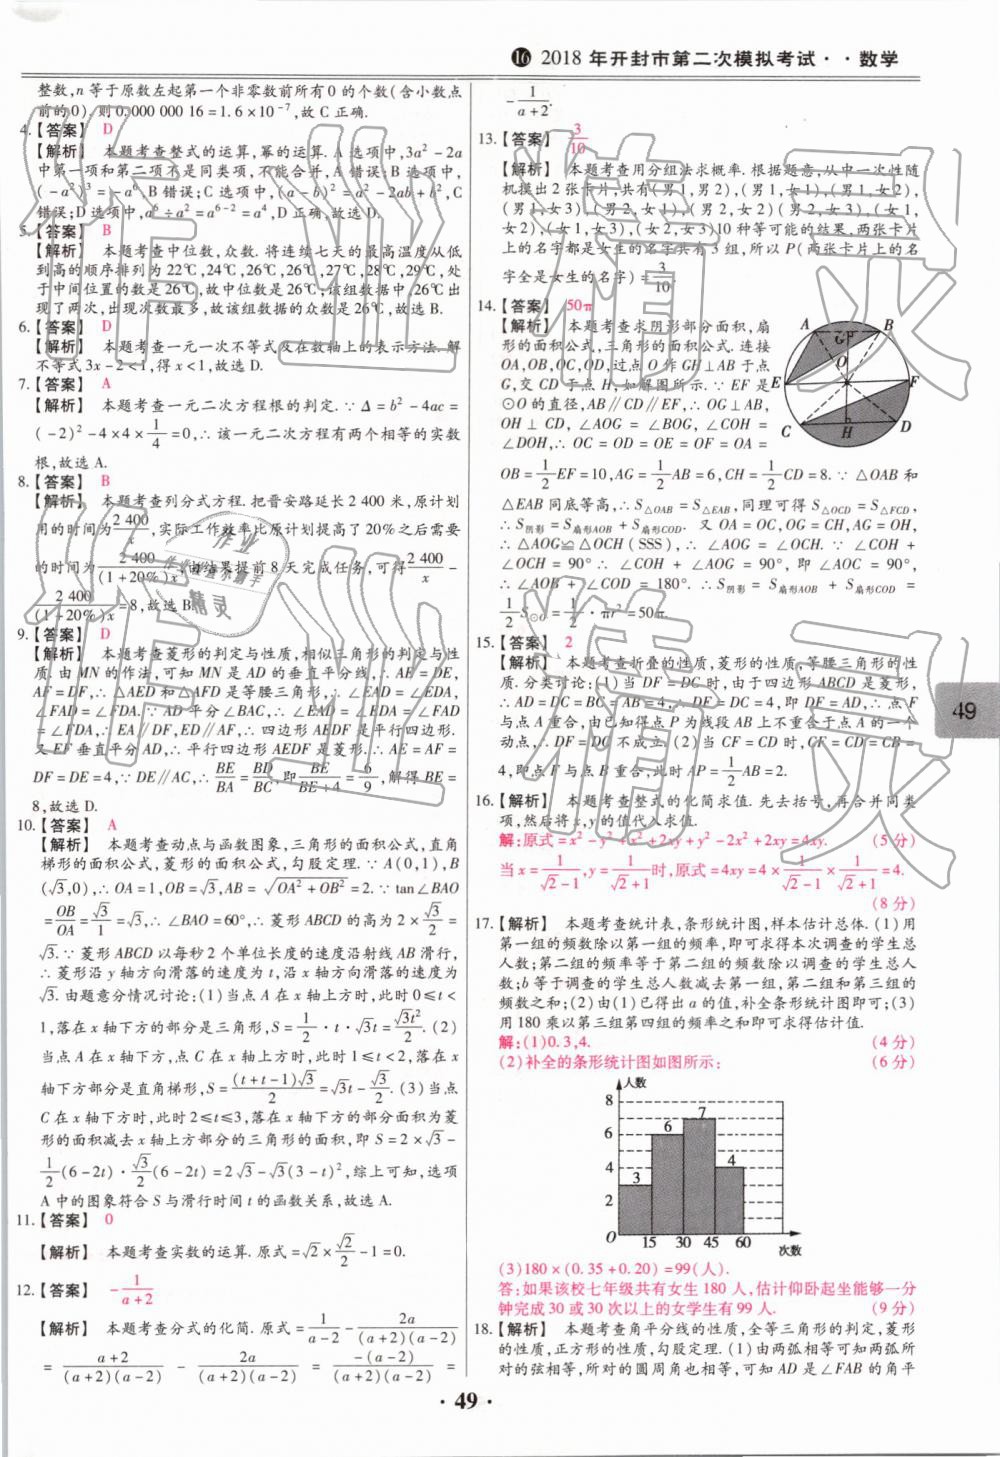 ⑯ 2018 年开封市第二次模拟考试··数学
整数,n 等于原数左起第一个非零数前所有 0 的个数(含小数点
前的0).则0.000 000 16=1.6×10⁻⁷,故 C 正确.
4.【答案】 D
【解析】 本题考查整式的运算,幂的运算. A 选项中,3a²-2a
中第一项和第二项不是同类项,不能合并,A 错误;B 选项中,
(-a²)³=-a⁶,B 错误;C 选项中,(a-b)²=a²-2ab+b²,C
错误;D 选项中,a⁶÷a²=a⁶⁻²=a⁴,D 正确,故选 D.
5.【答案】 B
【解析】 本题考查中位数,众数. 将连续七天的最高温度从低
到高的顺序排列为 22℃,24℃,26℃,26℃,27℃,28℃,29℃,处
于中间位置的数是 26℃,故中位数是 26℃;该组数据中 26℃出
现了两次,出现次数最多,故该组数据的众数是 26℃,故选 B.
6.【答案】 D
【解析】 本题考查一元一次不等式及在数轴上的表示方法. 解
不等式3x-2<1,得 x<1,故选 D.
7.【答案】 A
【解析】 本题考查一元二次方程根的判定. ∵ Δ=b²-4ac=
(-2)²-4×4×1/4=0,∴ 该一元二次方程有两个相等的实数
根,故选 A.
8.【答案】 B
【解析】 本题考查列分式方程. 把晋安路延长2 400 米,原计划
用的时间为2 400/x,实际工作效率比原计划提高了20%之后需要
的时间为2 400/(1+20%)x,由结果提前 8 天完成任务,可得2 400/x-
2 400/(1+20%)x=8,故选 B.
9.【答案】 D
【解析】 本题考查菱形的判定与性质,相似三角形的判定与性
质. 由 MN 的作法,可知 MN 是 AD 的垂直平分线,∴ AE=DE,
AF=DF,∴ △AED 和△AFD 是等腰三角形,∴ ∠EAD=∠EDA,
∠FAD=∠FDA. ∵ AD 平分∠BAC,∴ ∠EAD=∠EDA=∠FAD
=∠FDA,∴ EA∥DF,ED∥AF,∴ 四边形 AEDF 是平行四边形.
又 EF 垂直平分 AD,∴ 平行四边形 AEDF 是菱形. ∴ AE=AF=
DF=DE=4,∵ DE∥AC,∴ BE/BA=BD/BC,即BE/(BE+4)=6/9,解得 BE=
8,故选 D.
10.【答案】 A
【解析】 本题考查动点与函数图象,三角形的面积公式,直角
梯形的面积公式,菱形的面积公式,勾股定理. ∵ A(0,1),B
(√3,0),∴ OA=1,OB=√3,AB=√(OA²+OB²)=2. ∵ tan∠BAO
=OB/OA=√3/1=√3,∴ ∠BAO=60°,∴ 菱形 ABCD 的高为 2×√3/2=
√3. ∵ 菱形 ABCD 以每秒 2 个单位长度的速度沿射线 AB 滑行,
∴ 菱形沿 y 轴方向滑落的速度为 t,沿 x 轴方向滑落的速度为
√3. 由题意分情况讨论:(1)当点 A 在 x 轴上方时,此时 0≤t<
1,落在 x 轴下方的部分是三角形,S=1/2·t·√3t=√3t²/2. (2)
当点 A 在 x 轴下方,点 C 在 x 轴上方时,此时 1≤t<2,落在 x
轴下方部分是直角梯形,S=(t+t-1)√3/2=√3t-√3/2. (3)当点
C 在 x 轴下方时,此时2≤t≤3,落在 x 轴下方的部分面积为菱
形的面积减去 x 轴上方部分的三角形的面积,即 S=2×√3-
1/2(6-2t)·√3/2(6-2t)=2√3-√3(3-t)²,综上可知,选项
A 中的图象符合 S 与滑行时间 t 的函数关系,故选 A.
11.【答案】 0
【解析】 本题考查实数的运算. 原式=√2×√2/2-1=0.
12.【答案】 -1/(a+2)
【解析】 本题考查分式的化简. 原式=1/(a-2)-2a/(a+2)(a-2)
=(a+2)/(a+2)(a-2)-2a/(a+2)(a-2)=-(a-2)/(a+2)(a-2)=
-1/(a+2).
13.【答案】 3/10
【解析】 本题考查用分组法求概率. 根据题意,从中一次性随
机摸出 2 张卡片,共有(男1,男2),(男1,女1),(男1,女2),
(男1,女3),(男2,女1),(男2,女2)(男2,女3),(女1,
女2),(女1,女3),(女2,女3)10 种等可能的结果,两张卡片
上的名字都是女生的名字共有 3 组,所以 P(两张卡片上的名
字全是女生的名字)=3/10.
14.【答案】 50π
【解析】 本题考查求阴影部分面积,扇
形的面积公式,三角形的面积公式. 连接
OA,OB,OC,OD,过点 O 作 GH⊥AB 于点
G,交 CD 于点 H,如解图所示. ∵ EF 是
⊙O 的直径,AB∥CD∥EF,∴ OG⊥AB,
OH⊥CD,∠AOG=∠BOG,∠COH=
∠DOH,∴ OC=OD=OE=OF=OA=
OB=1/2EF=10,AG=1/2AB=6,CH=1/2CD=8. ∵ △OAB 和
△EAB 同底等高,∴ S△OAB=S△EAB,同理可得 S△OCD=S△FCD,
∴ S阴影=S扇形AOB+S扇形COD. 又 OA=OC,OG=CH,AG=OH,
∴ △AOG≌△OCH(SSS),∴ ∠AOG=∠OCH. ∵ ∠COH+
∠OCH=90°∴ ∠COH+∠AOG=90°,即∠AOC=90°,
∴ ∠AOB+∠COD=180°. ∴ S阴影=S扇形AOB+S扇形COD=
1/2S⊙O=1/2·πr²=50π.
A G B
O
E F
C H D
15.【答案】 2
【解析】 本题考查折叠的性质,菱形的性质,等腰三角形的性
质. 分类讨论:(1)当 DF=DC 时,由于四边形 ABCD 是菱形,
∴ AD=DC=BC=AB=4,∴ DF=DC=4,即 DF=AD,∴ 点 F
与点 A 重合,由已知得点 P 为线段 AB 上不重合于点 A 的一个
动点,∴ DF=DC 不成立. (2)当 CF=CD 时,CF=CD=CB=
4,即点 F 与点 B 重合,此时 AP=1/2AB=2.
16.【解析】 本题考查整式的化简求值. 先去括号,再合并同类
项,然后将 x,y 的值代入求值.
解:原式=x²-y²+x²+2xy+y²-2x²+2xy=4xy. (5 分)
当 x=1/(√2-1),y=1/(√2+1)时,原式=4xy=4×1/(√2-1)×1/(√2+1)=4.
(8 分)
17.【解析】 本题考查统计表,条形统计图,样本估计总体. (1)用
第一组的频数除以第一组的频率,即可求得本次调查的学生总
人数;第二组的频率等于第二组的频数除以调查的学生总人
数;b 等于调查的学生总人数减去第一组,第二组和第三组的
频数之和;(2)由(1)已得出 a 的值,补全条形统计图即可;(3)
用 180 乘以第三组第四组的频率之和即可求得估计值.
解:(1)0.3,4. (4 分)
(2)补全的条形统计图如图所示: (6 分)
人数
8
6
4
2
O
3 6 7 4
15 30 45 60 次数
(3)180×(0.35+0.20)=99(人).
答:如果该校七年级共有女生 180 人,估计仰卧起坐能够一分
钟完成 30 或 30 次以上的女学生有 99 人. (9 分)
18.【解析】 本题考查角平分线的性质,全等三角形的判定,菱形
的性质,正方形的性质,勾股定理. (1)由两弧相等可知两弧所
对的弦相等,所对的圆周角也相等,可知 AD 是∠FAB 的角平
49
· 49 ·
作业精灵
作业精灵
作业
作业检查小帮手
精灵